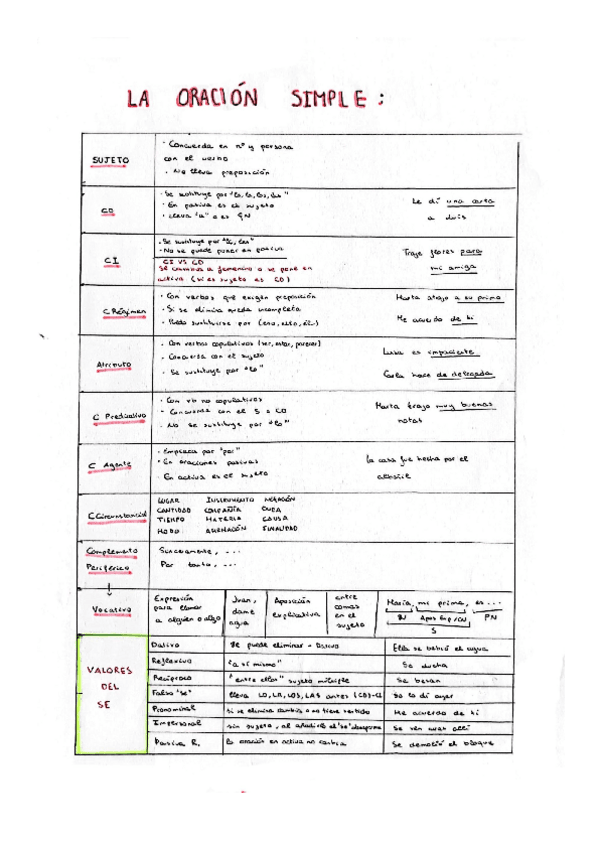 LA ORACIÓN SIMPLE:
SUJETO
· Concuerda en nº y persona
con el verbo
· No lleva preposición
CD
· Se sustituye por "lo, la, los, las"
· En pasiva es el sujeto
· Lleva "a" o es SN
Le di una carta
a Luis
CI
· Se sustituye por "le, les"
· No se puede poner en pasiva
CI VS CD
Se cambia a femenino o se pone en
activa (si es sujeto es CD)
Traje flores para
mi amiga
C Régimen
· Con verbos que exigen preposición
· Si se elimina queda incompleta
· Puede sustituirse por (eso, ello, él..)
Marta atajo a su primo
Me acuerdo de ti
Atributo
· Con verbos copulativos (ser, estar, parecer)
· Concuerda con el sujeto
· Se sustituye por "lo"
Luisa es impaciente
Carla hace de delegada
C Predicativo
· Con vb no copulativos
· Concuerda con el S o CD
· No se sustituye por "lo"
Marta trajo muy buenas
notas
C Agente
· Empieza por "por"
· En oraciones pasivas
· En activa es el sujeto
La casa fue hecha por el
albañil
C Circunstancial
LUGAR INSTRUMENTO NEGACIÓN
CANTIDAD COMPAÑÍA DUDA
TIEMPO MATERIA CAUSA
MODO AFIRMACIÓN FINALIDAD
Complemento
Periférico
Sinceramente, ...
Por tanto, ...
Vocativo
Expresión
para llamar
a alguien o algo
Juan,
dame
agua
Aposición
explicativa
entre
comas
en el
sujeto
María, mi prima, es ...
N Apos Exp/CN PN
S
VALORES
DEL
SE
Dativo
Se puede eliminar
Ella se bebió el agua
Reflexivo
"a sí mismo"
Se ducha
Recíproco
"entre ellos" sujeto múltiple
Se besan
Falso "se"
lleva LO, LA, LOS, LAS antes (CD)-CI
Se lo di ayer
Pronominal
Si se elimina cambia o no tiene sentido
Me acuerdo de ti
Impersonal
sin sujeto, al añadirlo el "se" desaparece
Se ven allí
Pasiva R.
la oración en activa no cambia
Se demolió el bloque